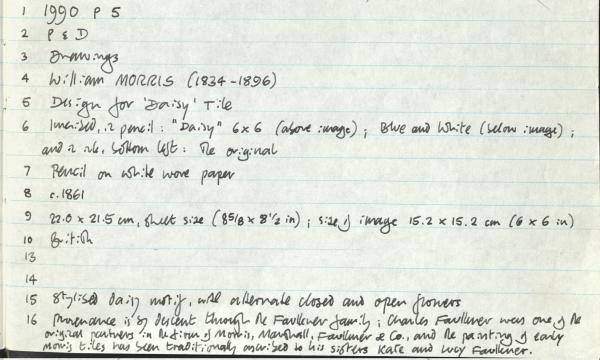 1 1990 P 5
2 P & D
3 Drawings
4 William MORRIS (1834-1896)
5 Design for 'Daisy' Tile
6 Inscribed, in pencil: "Daisy" 6x6 (above image); Blue and White (below image);
and in ink, bottom left: The original
7 Pencil on white wove paper
8 c.1861
9 22.0 x 21.5 cm, sheet size (8 5/8 x 8 1/2 in); size of image 15.2 x 15.2 cm (6 x 6 in)
10 British
13
14
15 Stylised daisy motif, with alternate closed and open flowers
16 Provenance is by descent through the Faulkner family; Charles Faulkner was one of the
original partners in the firm of Morris, Marshall, Faulkner & Co., and the painting of early
Morris tiles has been traditionally ascribed to his sisters Kate and Lucy Faulkner.